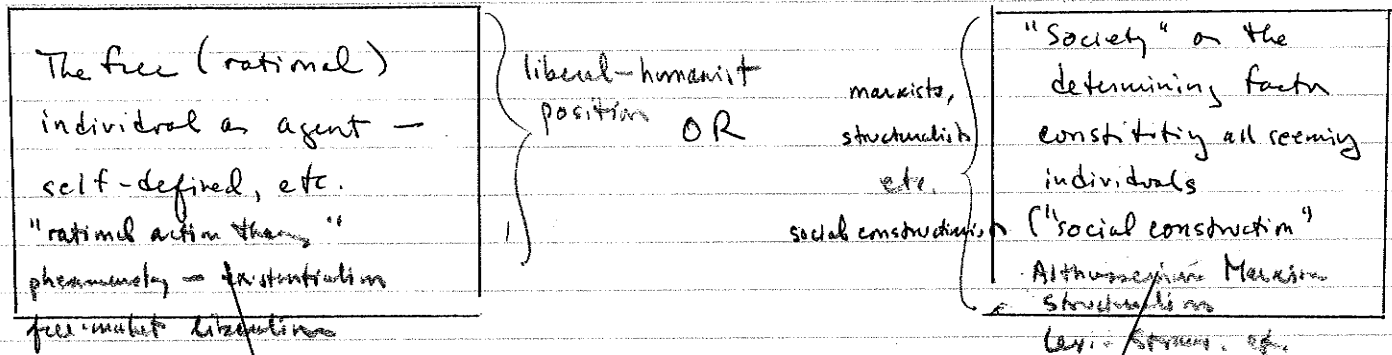 The free (rational)
individual as agent —
self-defined, etc.
"rational action theory"
phenomenology – existentialism
free-market liberalism
liberal-humanist
position
OR
marxists,
structuralists
etc.
social constructionists
"Society" as the
determining factor
constituting all seeming
individuals
("social construction"
Althusserian Marxism
structuralism
Levi-Strauss, etc.